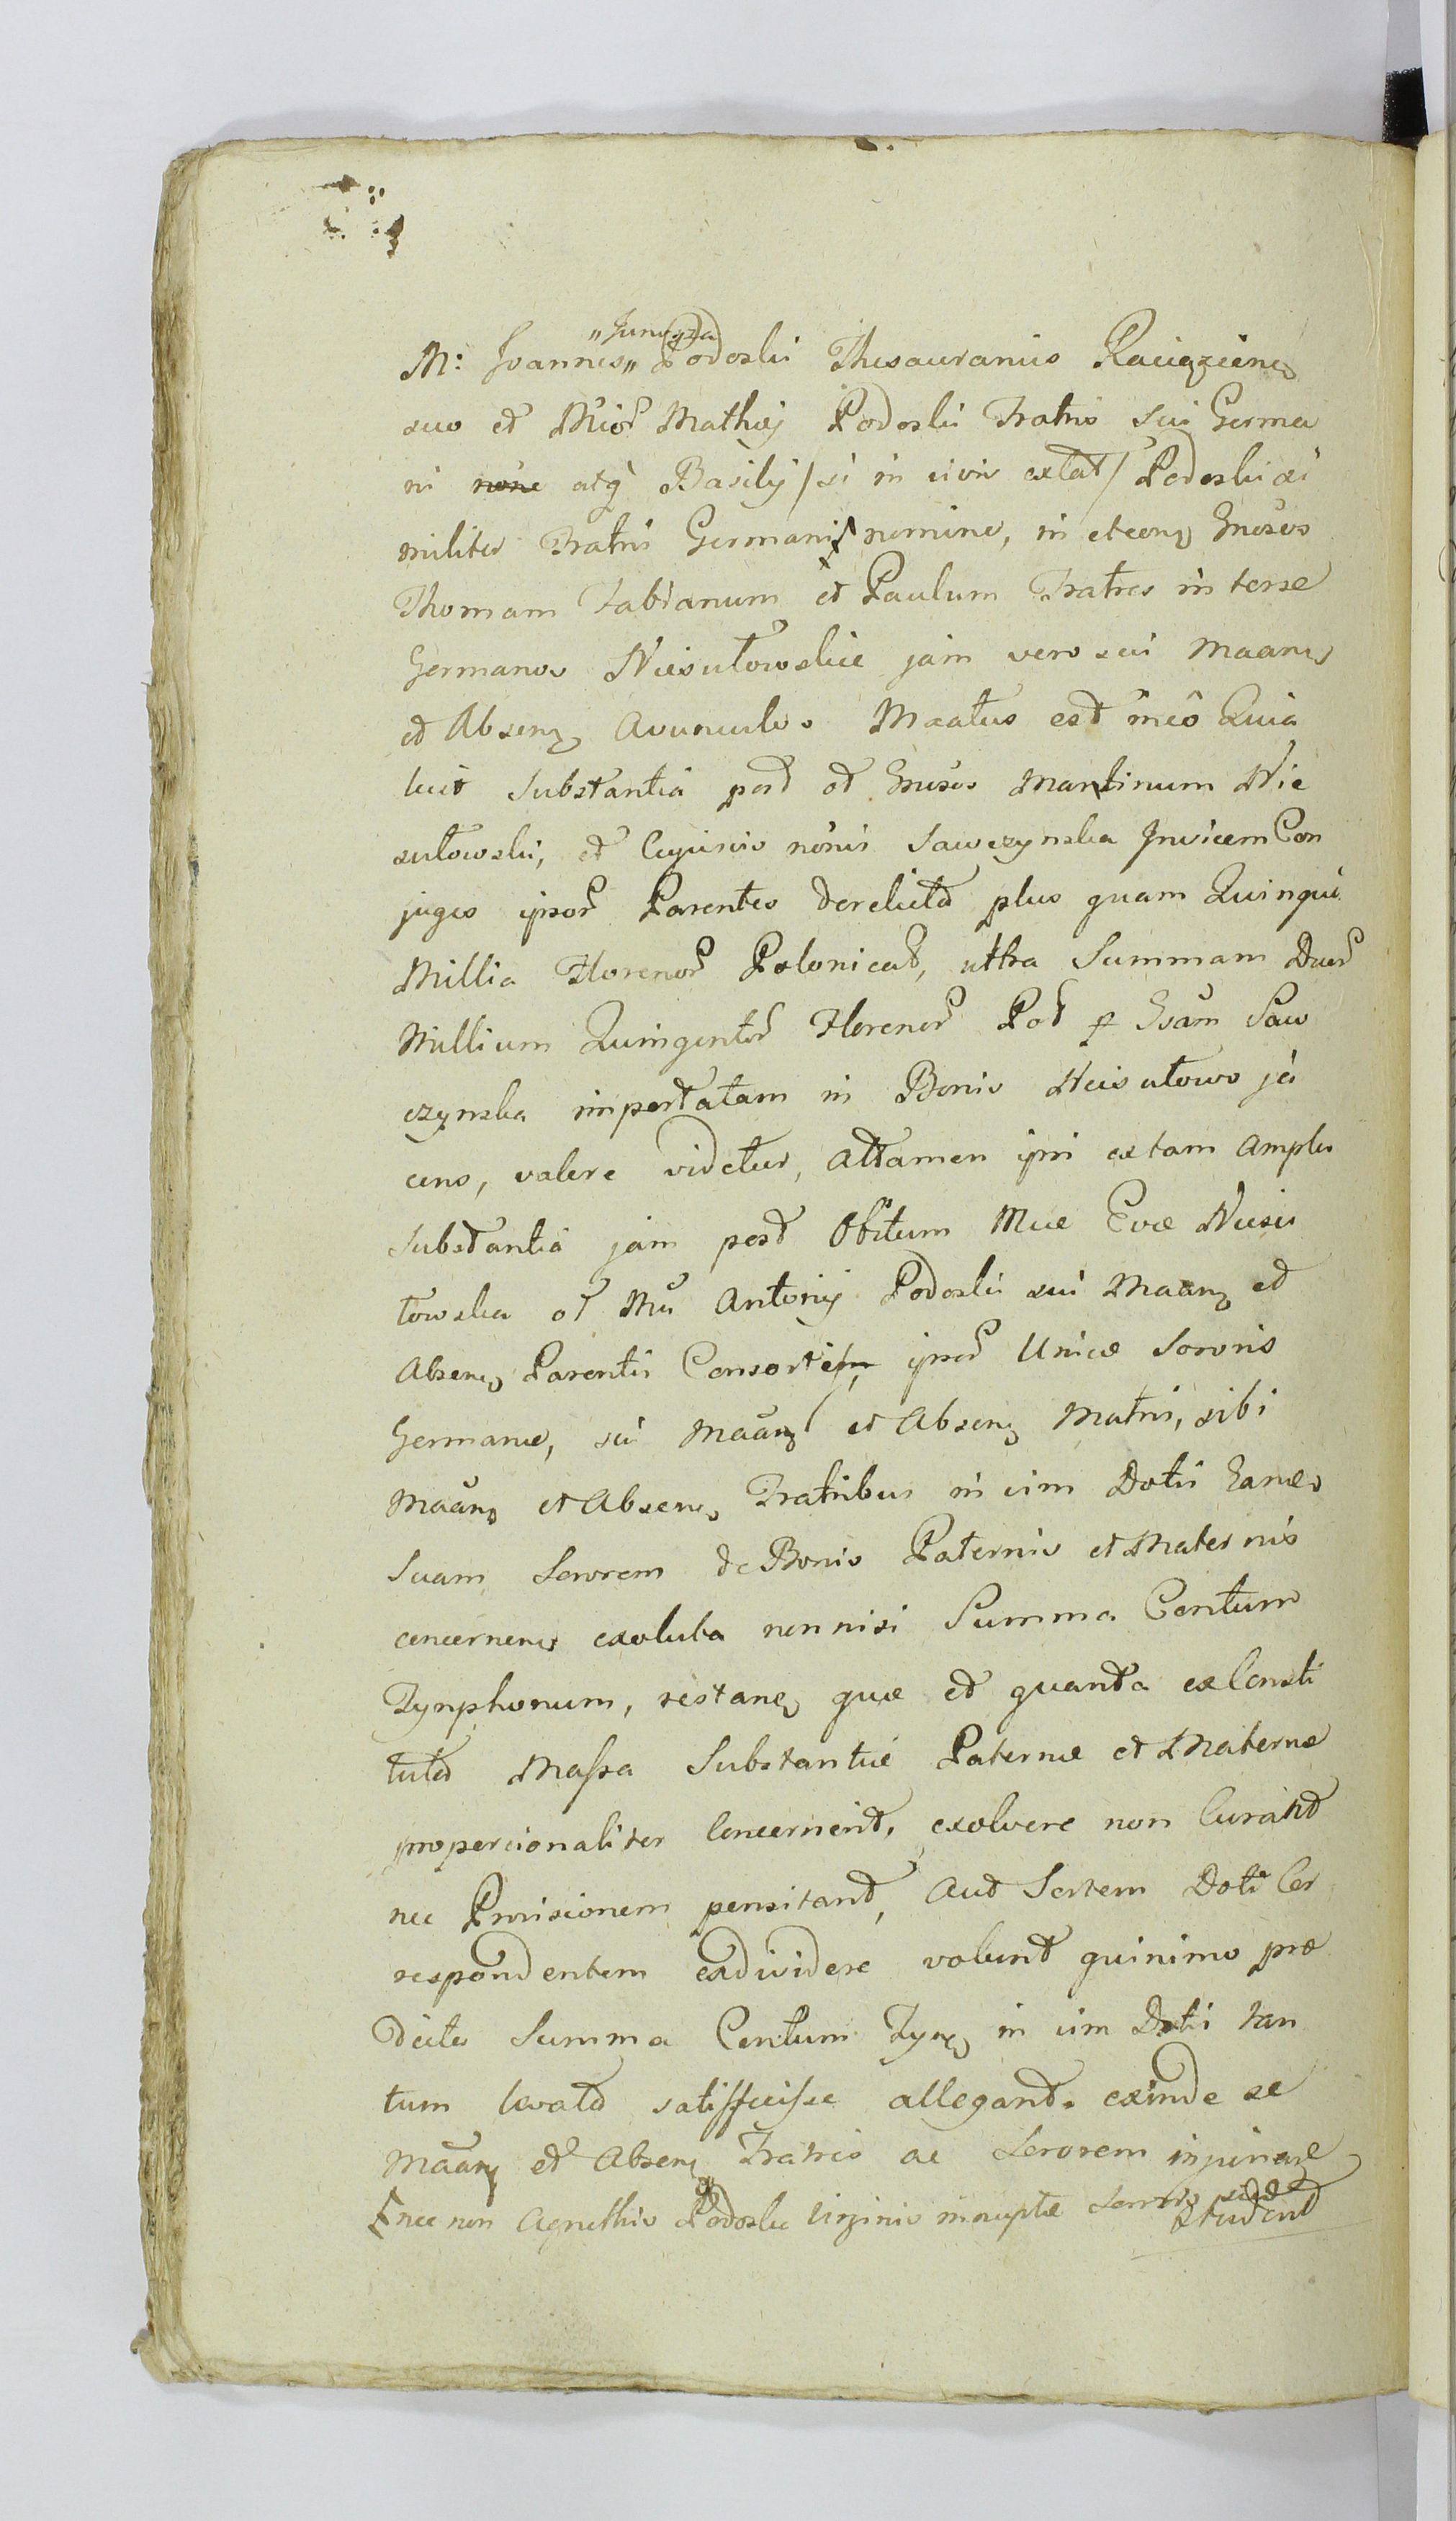 „Junosza
M: Joannes„ Podoski Thesaurarius Raciąziens
suo et Mior Mathæj Podoski Fratris sui Germa
ni none atq Basilij /si in vivis extat/ Podoski si
militer Fratris Germani nomine, in et eons Gnosos
Thomam Fabianum et Paulum Fratres interse
Germanos Niesułowskie jam vero sui Maans
et Absens Avunculos Maatus est ineo Quia
licit Substantia post ol Gnosos Martinum Nie
sułowski, et Cujusvis nonis Sawczynska Invicem Con
juges ipsor Parentes derelicta plus quam Quinque
Millia Florenor Polonical, ultra Summam Duor
Millium Quingentor Florenor Pol p Gsam Saw
czynska importatam in Bonis Niesułowo ja
cens, valere videtur, attamen ipsi ex tam ampla
Substantia jam post Obitum Mcæ Evæ Niesu
łowska ol Mci Antonij Podoski sui Maans et
Absens Parentis Consortis, ipsor Unicæ Sororis
Germanæ, sui Maans et Absens Matris, sibi
Maans et Absens Fratribus in vim Dotis Eandes
Suam Sororem de Bonis Paternis et Maternis
concernens exoluta nonnisi Summa Centum
Tynphonum, restans quæ et quanta ex Consti
tuta Massa Substantiæ Paternæ et Maternæ
propercionaliter Concernerit, exolvere non Curant
nec Provisionem pensitant, Aut Sortem Doti Cor
respondentem exdividere volunt quinimo præ
dicta Summa Centum Tyns in vim Doti tan
tum levata satisfecisse allegant. exinde se
Maans et Absens Fratres ac Sororem injuriare
student
nec non Agnethis Podoska Virginis innuptæ Sororis suæ